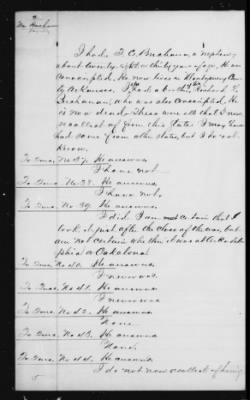 I had T. C. Buchanan, a nephew
about twenty eight or thirty years of age. He was
conscripted. He now lives in Montgomery Coun-
ty Arkansas. I had a brother, Richard G.
Buchanan, who was also conscripted. He
is now dead. These were all that I now
recollect of from this State. I may have
had some from other states, but I do not
know.
To Inty. No. 37. He answers
I have not.
To Inty. No. 38. He answers
I have not.
To Inty. No. 39. He answers
I did. I am not certain that I
took it just after the close of the war, but
am not certain whether it was at
or Okolona.
To Inty. No. 40. He answers
I never was.
To Inty. No. 41. He answers
I never was
To Inty. No. 42. He answers
None.
To Inty. No. 43. He answers
None.
To Inty. No. 44. He answers
I do not now recollect of having